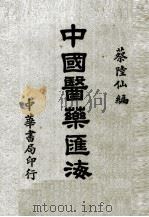 蔡陸仙編
中國醫藥匯海
中華書局印行